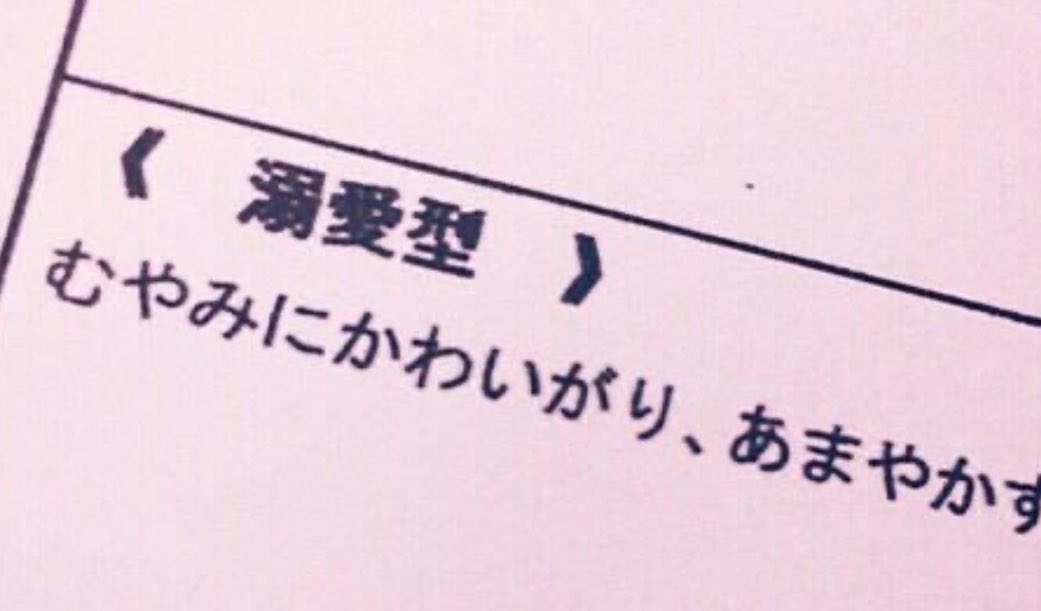 《　溺愛型　》
むやみにかわいがり、あまやかす